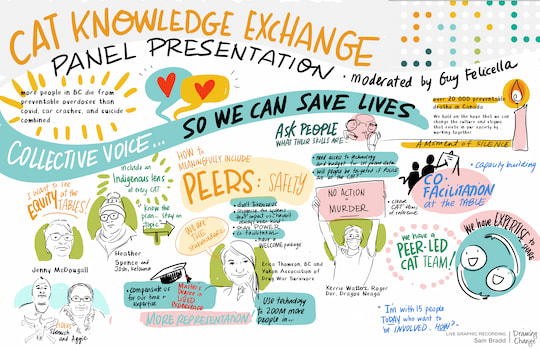 CAT KNOWLEDGE EXCHANGE
PANEL PRESENTATION
• moderated by Guy Felicella
more people in BC die from
preventable overdoses than
covid, car crashes, and suicide
combined
COLLECTIVE VOICE...
SO WE CAN SAVE LIVES
Ask PEOPLE
WHAT THEIR SKILLS ARE
over 20 000 preventable
deaths in Canada
We hold on the hope that we can
change the culture and stigma
that exists in our society by
working together
A Moment of SILENCE
I WANT TO SEE
all of the
EQUITY
TABLES!
Jenny McDougall
include an
Indigenous lens
at every CAT
• Know
the
plan...
Stay on
Topic
Heather
Spence and
Josh, Kelowna
ELDERS
and Aggie
HOW TO
MEANINGFULLY INCLUDE
PEERS: SAFETY
• don't
the systems
that impact us
play POWER
• co facilitation
• have a
WELCOME package
WE ARE
THE
stakeholders
Erica Thomson, BC and
Yukon Association of
Drug War Survivors
• compensate us
for our time + expertise
Master's
Degree in
LIVED
EXPERIENCE
MORE REPRESENTATION!
USE technology
to ZOOM more
people in...
• need access to technology
and budget for cell phone data
• will people be targeted if POLICE
at the CAT?
NO ACTION
=
MURDER
• clear
CAT terms
of reference
Kerrie Watters, Roger
Der, Dragos Neagu
• capacity building
CO-
FACILITATION
at the TABLE
We have a
PEER-LED
CAT TEAM!
We have EXPERTISE to SHARE
"I'm with 15 people
TODAY who want to
be INVOLVED. HOW?"
LIVE GRAPHIC RECORDING
Sam Bradd
Drawing
Change